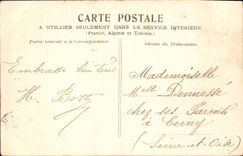 CARTE POSTALE
A UTILISER SEULEMENT DANS LE SERVICE INTERIEUR
(France, Algérie et Tunisie)
Partie réservée à la Correspondance.
Adresse du Destinataire.
Embrasse bien tous
H. Botty
Mademoiselle
Melle Dennessé
chez ses Parents
à Cerny
(Seine et Oise)